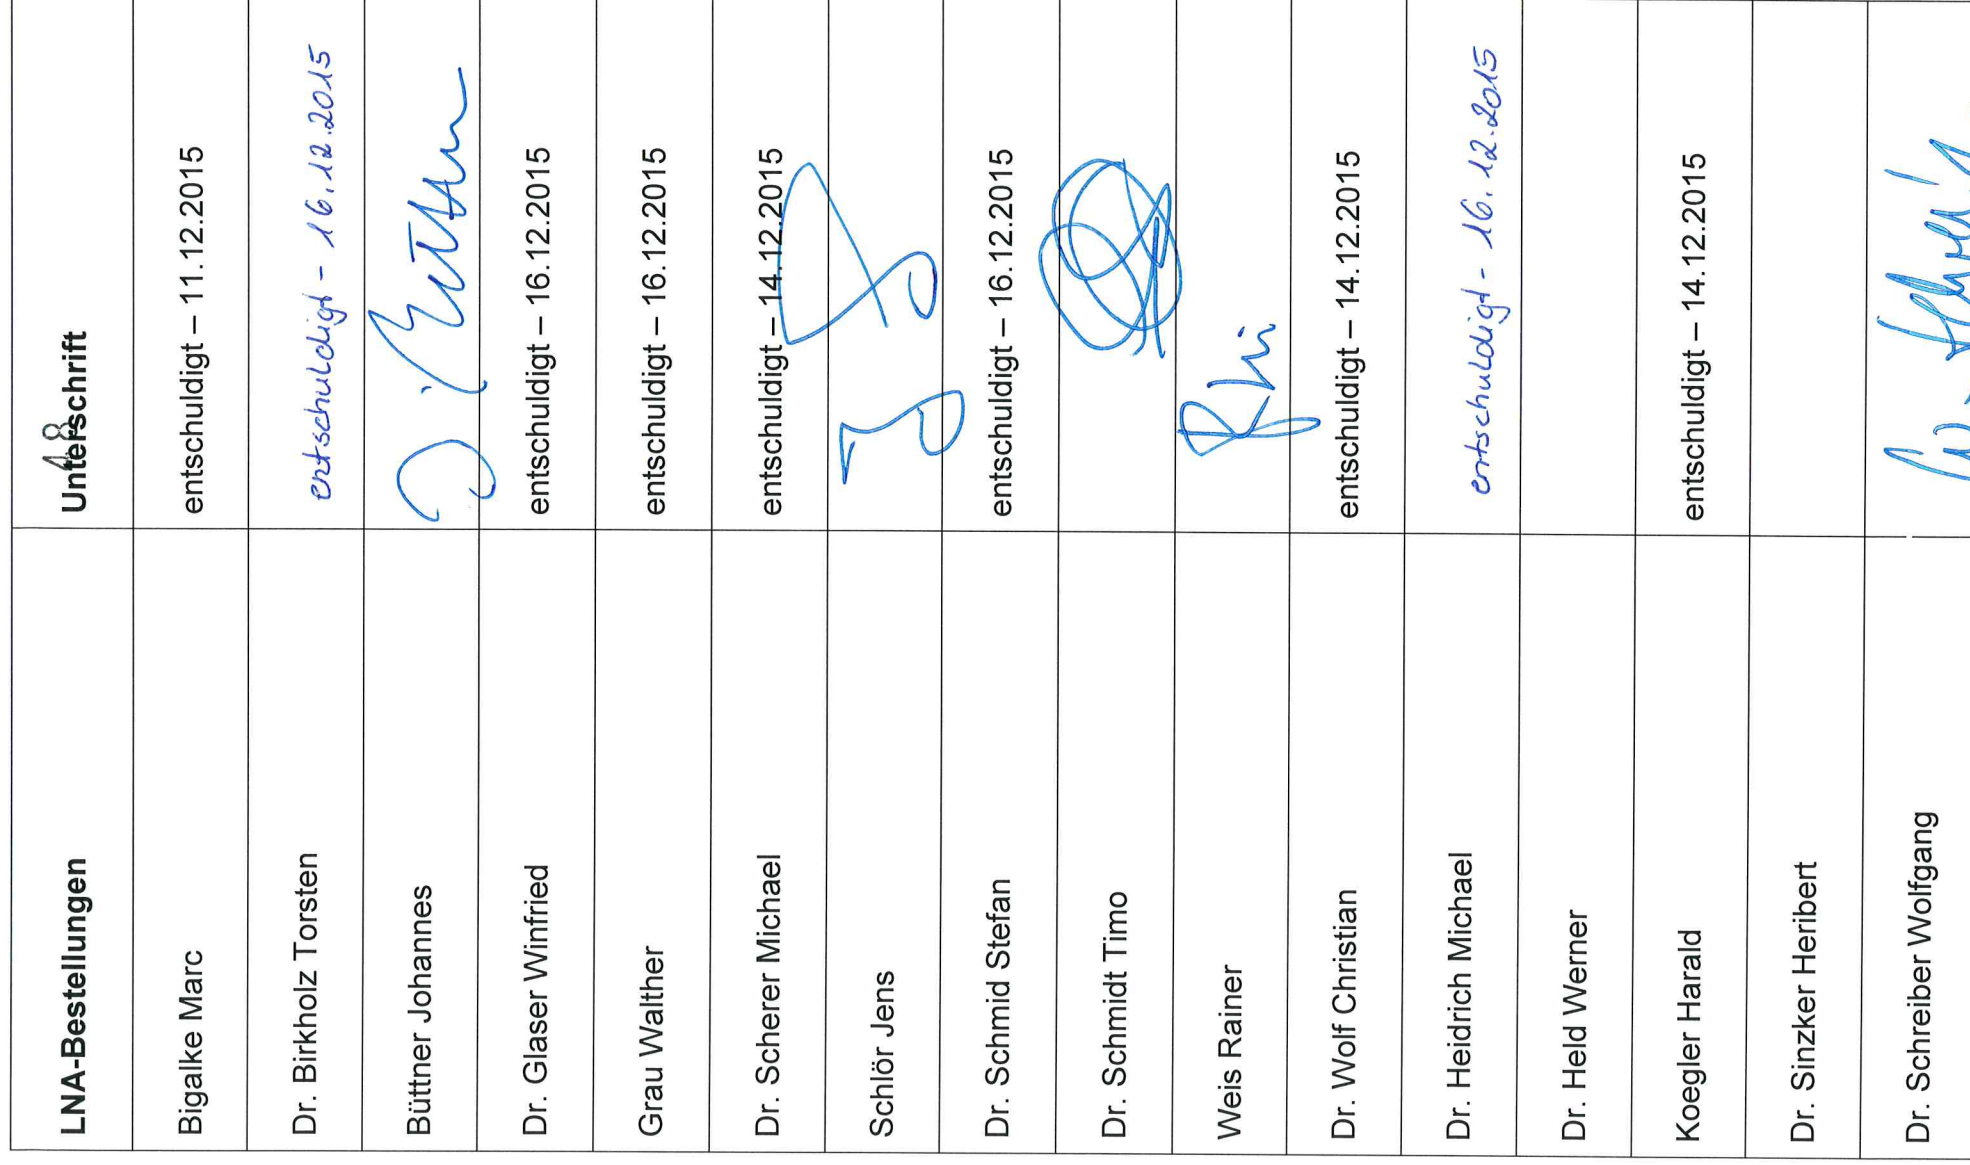 48
LNA-Bestellungen Unterschrift
Bigalke Marc entschuldigt – 11.12.2015
Dr. Birkholz Torsten entschuldigt - 16.12.2015
Büttner Johannes
Dr. Glaser Winfried entschuldigt – 16.12.2015
Grau Walther entschuldigt – 16.12.2015
Dr. Scherer Michael entschuldigt – 14.12.2015
Schlör Jens
Dr. Schmid Stefan entschuldigt – 16.12.2015
Dr. Schmidt Timo
Weis Rainer
Dr. Wolf Christian entschuldigt – 14.12.2015
Dr. Heidrich Michael entschuldigt - 16.12.2015
Dr. Held Werner
Koegler Harald entschuldigt – 14.12.2015
Dr. Sinzker Heribert
Dr. Schreiber Wolfgang